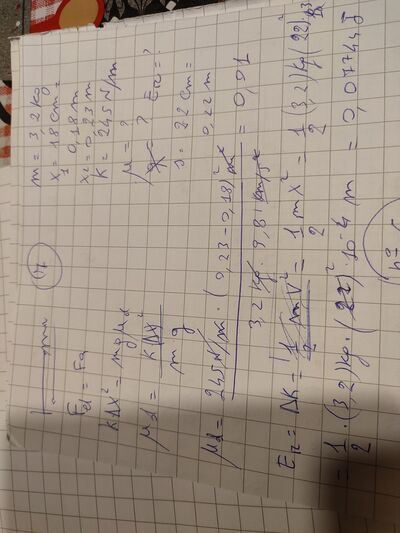 7
m = 3,2 Kg
x₁ = 18 cm =
0,18 m
x₂ = 0,23 m
K = 245 N/m
μ = ?
? Em = ?
s = 22 cm =
0,22 m
Fd = Fa
KΔx² = mgμd
μd = KΔx² / mg
μd = 245 N/m · (0,23 - 0,18)² m² / 3,2 kg · 9,81 = 0,01
Em = ΔK = 1/2 mv² = 1/2 mx² = 1/2 (3,2)kg (22)²
= 1/2 · (3,2)kg · (22)² · 10⁻⁴ m = 0,07744 J